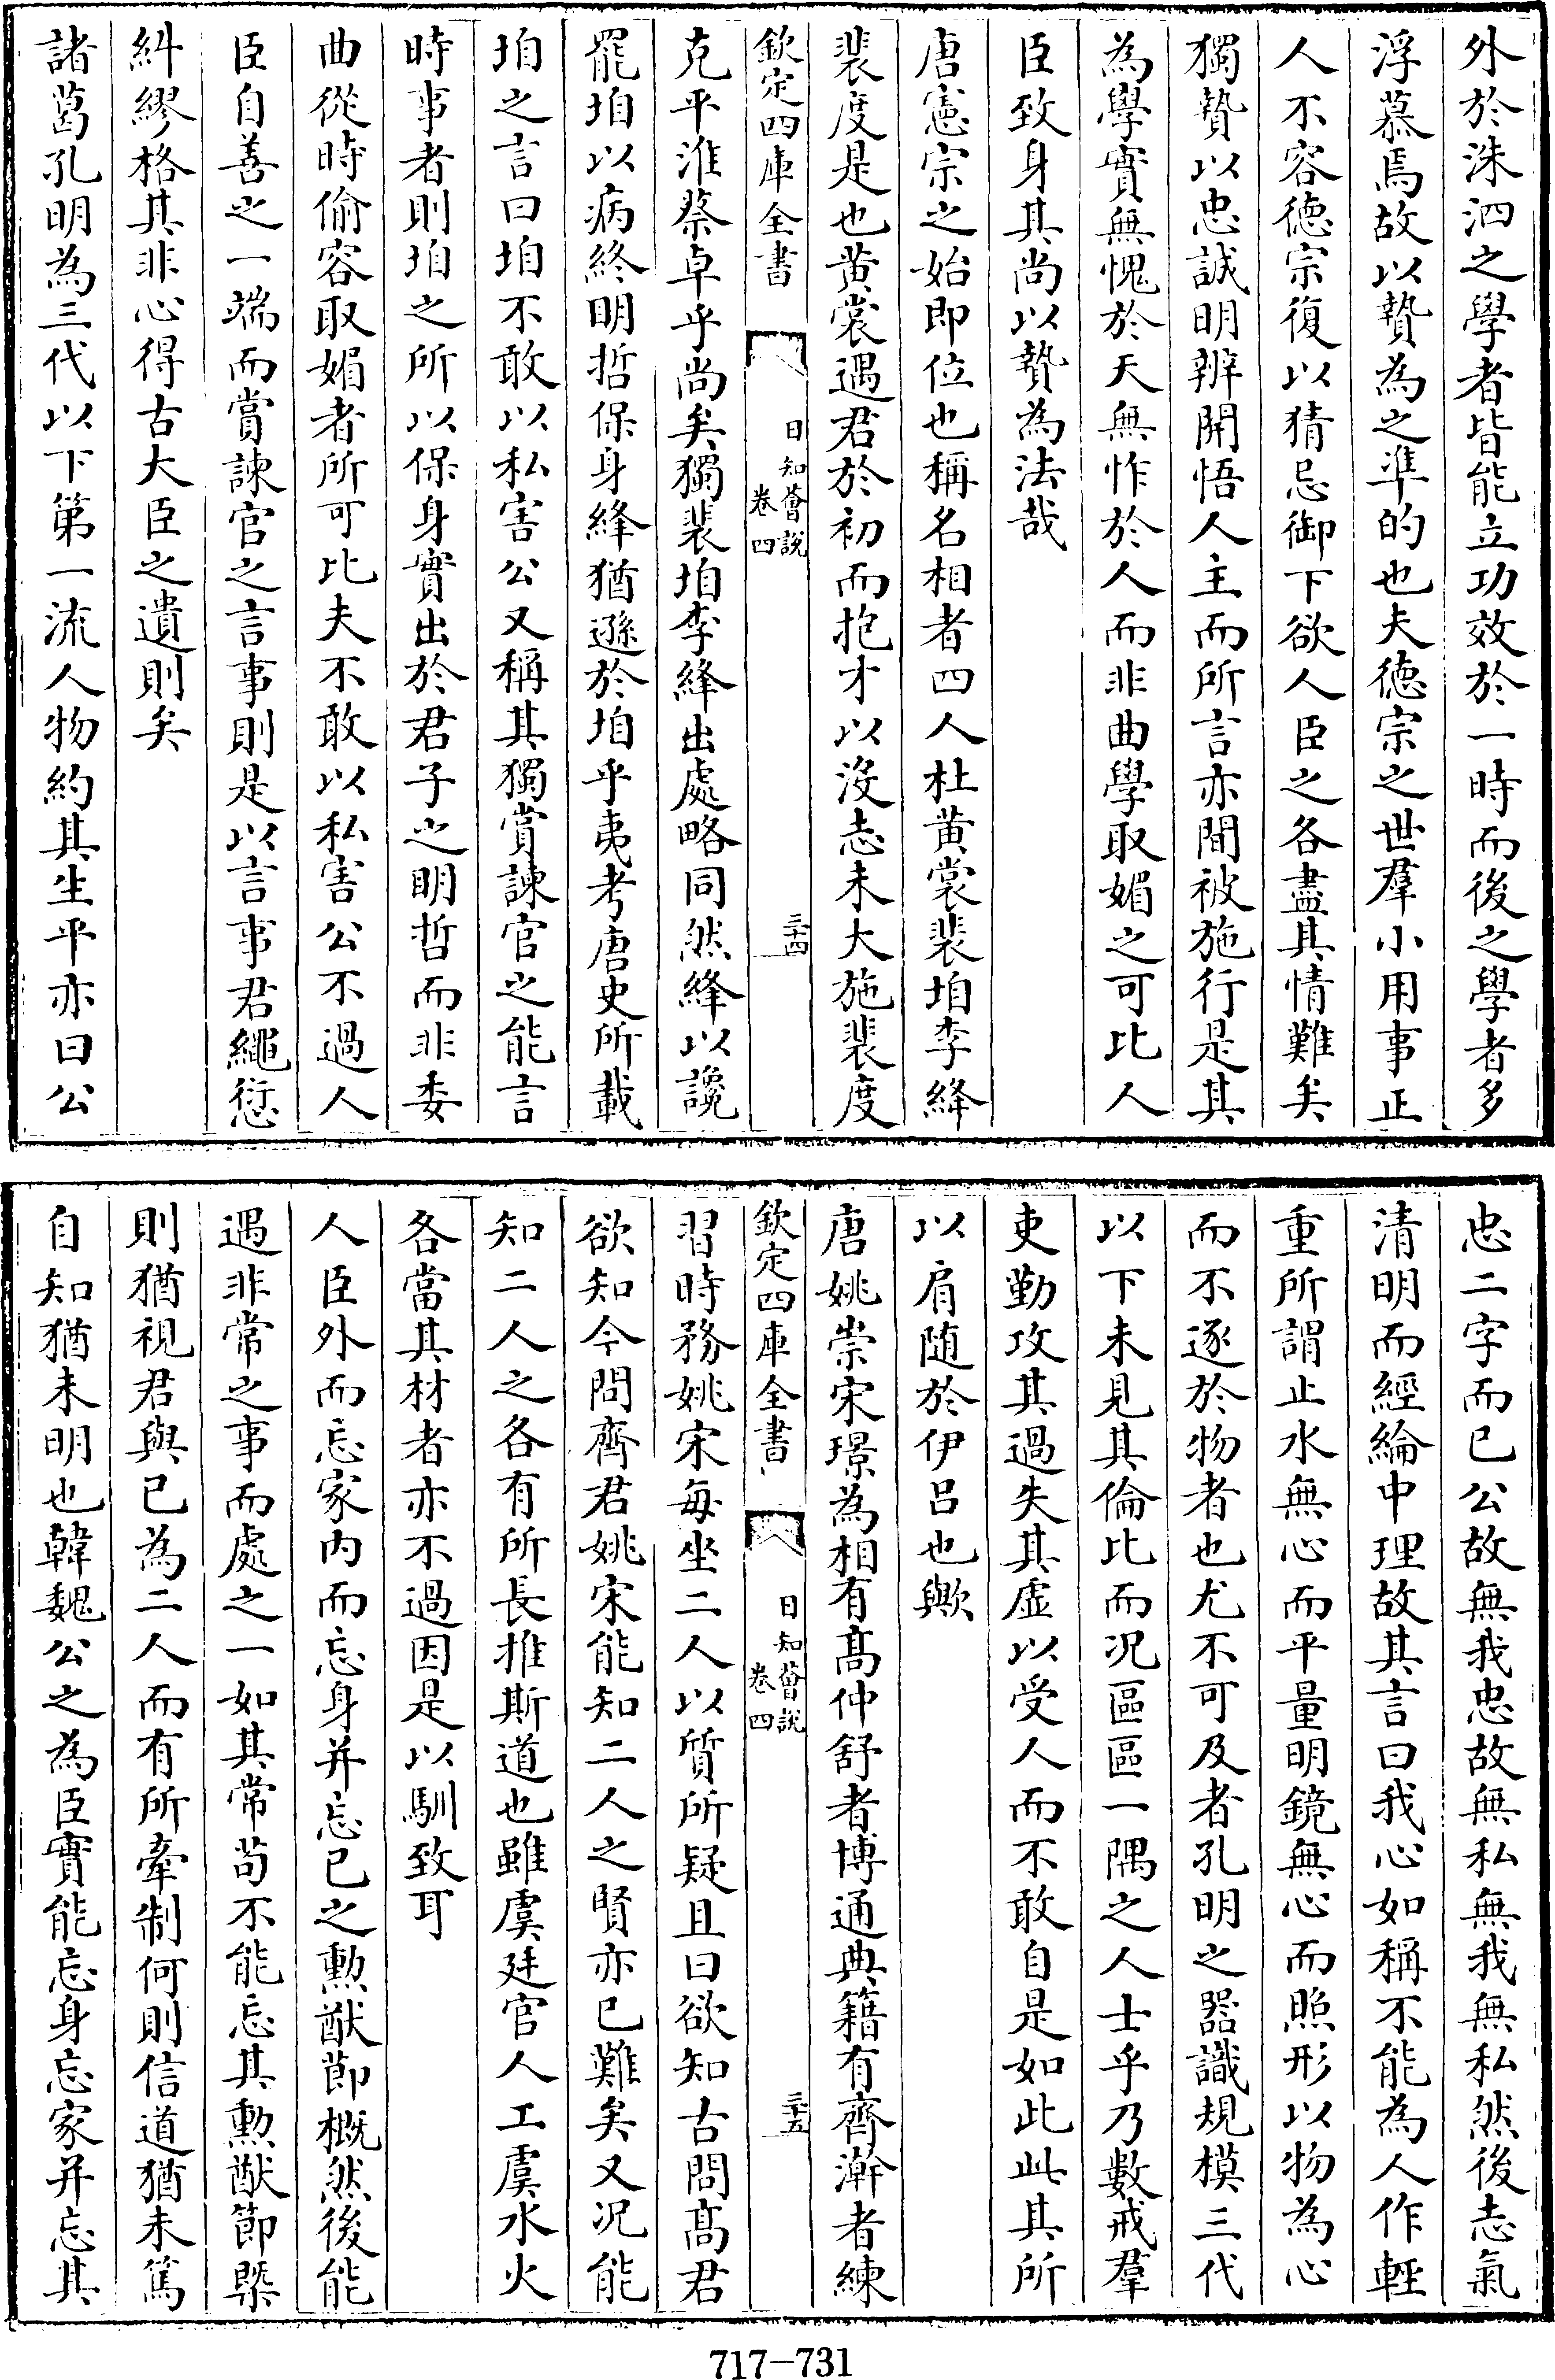 外於洙泗之學者皆能立功效於一時而後之學者多
浮慕焉故以贄為之準的也夫德宗之世羣小用事正
人不容德宗復以猜忌御下欲人臣之各盡其情難矣
獨贄以忠誠明辨開悟人主而所言亦間被施行是其
為學實無愧於天無怍於人而非曲學取媚之可比人
臣致身其尚以贄為法哉
唐憲宗之始即位也稱名相者四人杜黄裳裴垍李絳
裴度是也黄裳遇君於初而抱才以沒志未大施裴度
欽定四庫全書
日知薈說
卷四
三十四
克平淮蔡卓乎尚矣獨裴垍李絳出處略同然絳以讒
罷垍以病終明哲保身絳猶遜於垍乎夷考唐史所載
垍之言曰垍不敢以私害公又稱其獨賞諫官之能言
時事者則垍之所以保身實出於君子之明哲而非委
曲從時偷容取媚者所可比夫不敢以私害公不過人
臣自善之一端而賞諫官之言事則是以言事君繩愆
糾繆格其非心得古大臣之遺則矣
諸葛孔明為三代以下第一流人物約其生平亦曰公
忠二字而已公故無我忠故無私無我無私然後志氣
清明而經綸中理故其言曰我心如稱不能為人作輕
重所謂止水無心而平量明鏡無心而照形以物為心
而不逐於物者也尤不可及者孔明之器識規模三代
以下未見其倫比而况區區一隅之人士乎乃數戒羣
吏勤攻其過失其虛以受人而不敢自是如此此其所
以肩随於伊呂也歟
唐姚崇宋璟為相有髙仲舒者博通典籍有齊澣者練
欽定四庫全書
日知薈說
卷四
三十五
習時務姚宋每坐二人以質所疑且曰欲知古問髙君
欲知今問齊君姚宋能知二人之賢亦已難矣又况能
知二人之各有所長推斯道也雖虞廷官人工虞水火
各當其材者亦不過因是以馴致耳
人臣外而忘家内而忘身并忘已之勲猷節概然後能
遇非常之事而處之一如其常苟不能忘其勲猷節槩
則猶視君與已為二人而有所牽制何則信道猶未篤
自知猶未明也韓魏公之為臣實能忘身忘家并忘其
717-731